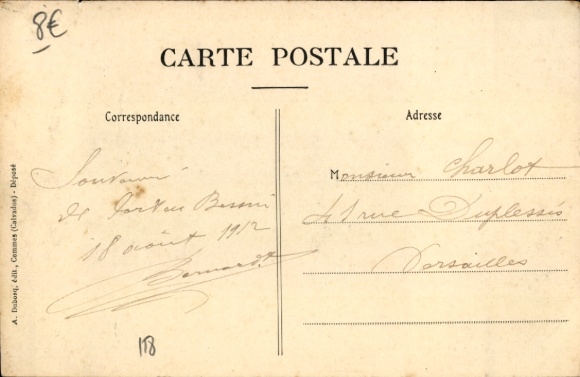 8€
CARTE POSTALE
Correspondance
Adresse
Souvenir
de Port en Bessin
18 août 1912
Bernard
Monsieur Charlot
41 rue Duplessis
Versailles
A. Dubosq, édit., Commes (Calvados) - Déposé
158